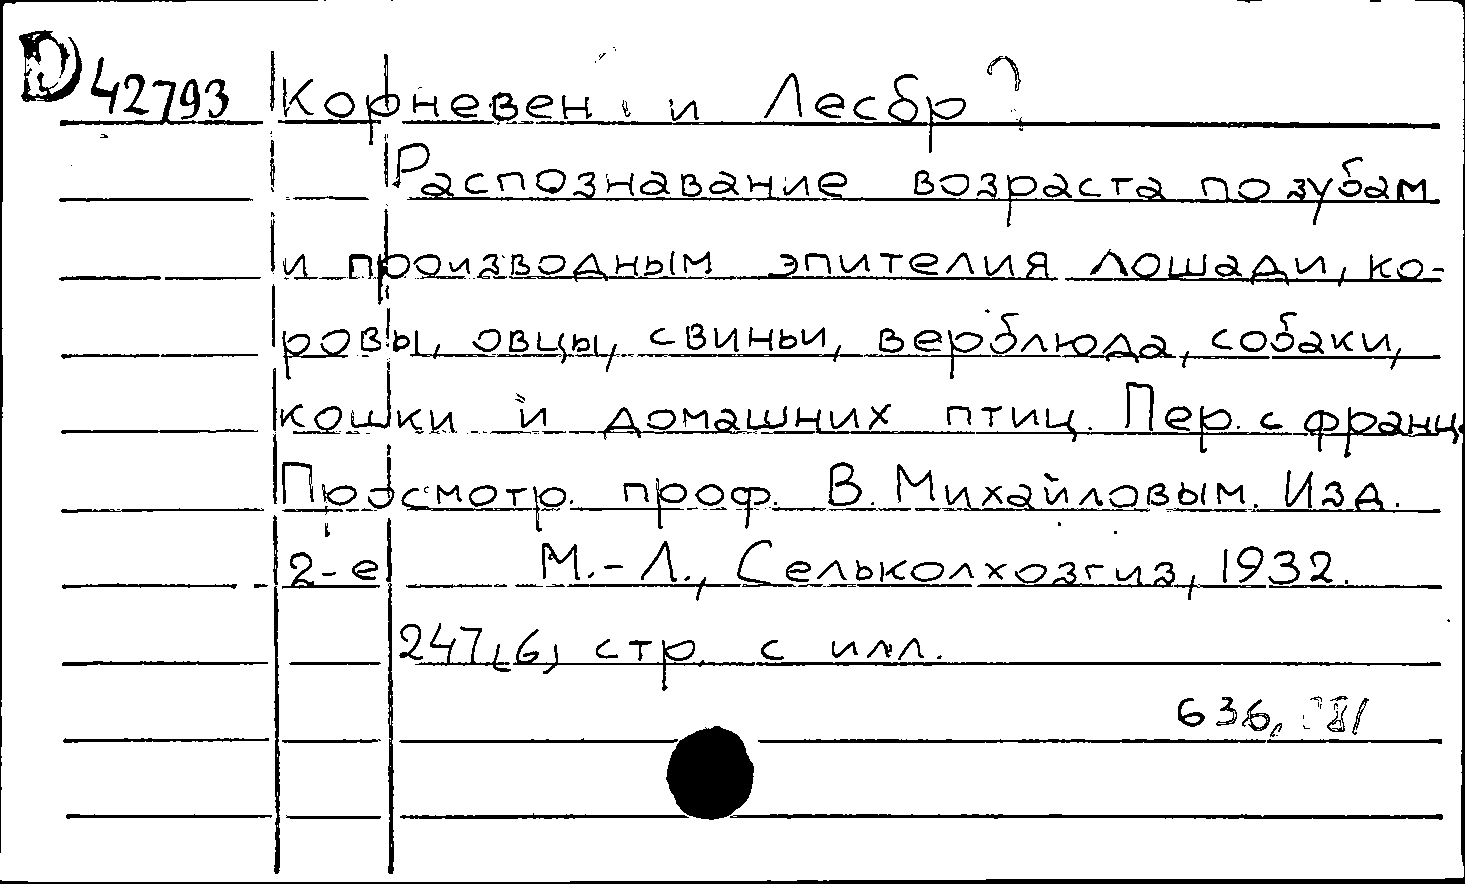 D 42793 Корневен и Лесбр
Распознавание возраста по зубам
и производным эпителия лошади, ко-
ровы, овцы, свиньи, верблюда, собаки,
кошки и домашних птиц. Пер. с франц.
Просмотр. проф. В. Михайловым. Изд.
2-е М.-Л., Сельколхозгиз, 1932.
247,(6) стр. с илл.